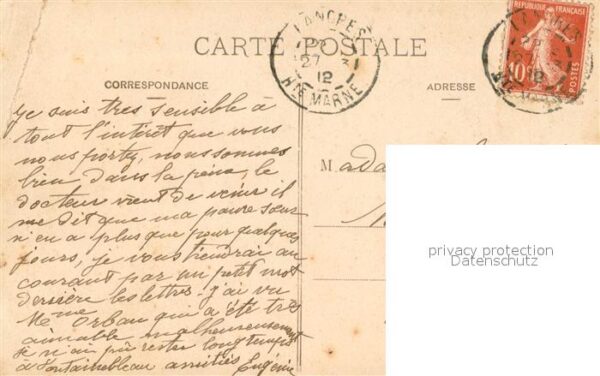 CARTE POSTALE
LANGRES
27 - 3
12
Hte MARNE
RÉPUBLIQUE FRANÇAISE
10c
POSTES
CORRESPONDANCE
ADRESSE
Je suis très sensible à
tout l'intérêt que vous
nous portez, nous sommes
bien dans la peine, le
docteur vient de venir il
me dit que ma pauvre sœur
n'en a plus que pour quelques
jours, je vous tiendrai au
courant par un petit mot
derrière les lettres. j'ai vu
Me Orbau qui a été très
aimable malheureusement
je n'ai pu rester longtemps
à Fontainebleau amitiés Eugénie
Mada
privacy protection
Datenschutz